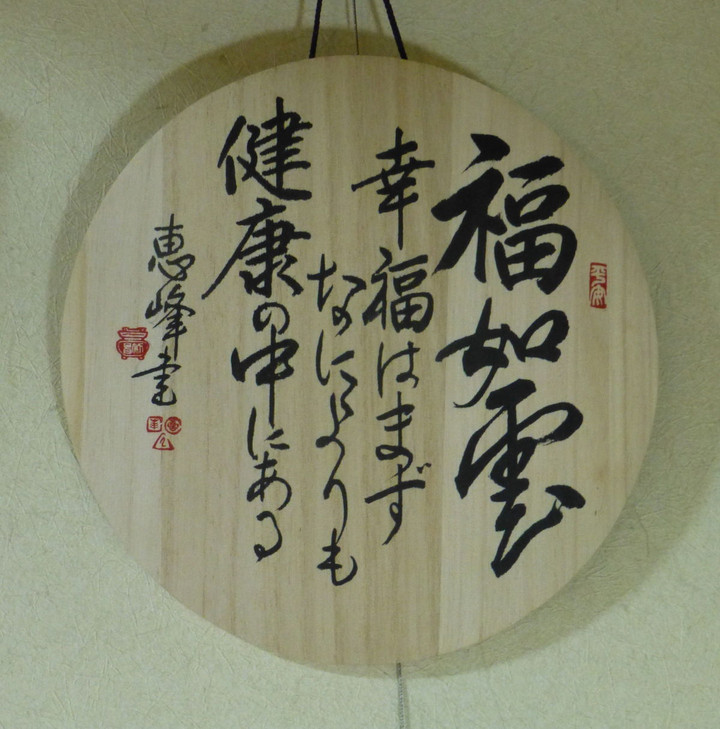 福如雲
幸福はまず
なによりも
健康の中にある
恵峰書
平安